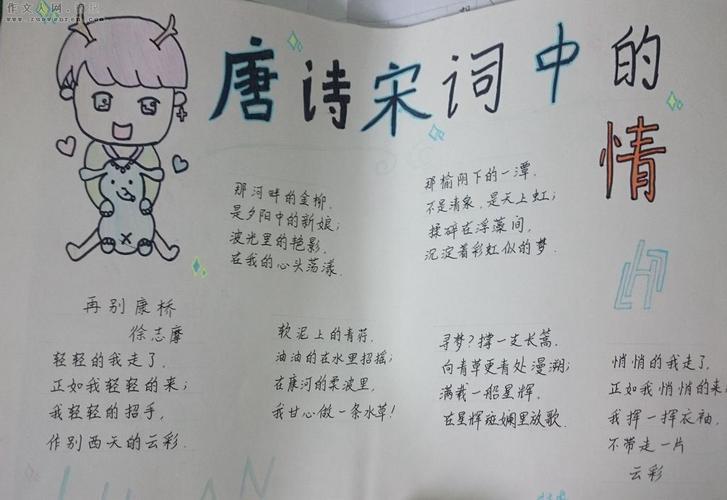 作文人网
唐诗宋词中的
情
那河畔的金柳,
是夕阳中的新娘;
波光里的艳影,
在我的心头荡漾.
那榆阴下的一潭,
不是清泉,是天上虹;
揉碎在浮藻间,
沉淀着彩虹似的梦.
再别康桥
徐志摩
轻轻的我走了,
正如我轻轻的来;
我轻轻的招手,
作别西天的云彩.
软泥上的青荇,
油油的在水里招摇;
在康河的柔波里,
我甘心做一条水草!
寻梦?撑一支长篙,
向青草更青处漫溯;
满载一船星辉,
在星辉斑斓里放歌.
悄悄的我走了,
正如我悄悄的来
我挥一挥衣袖,
不带走一片
云彩